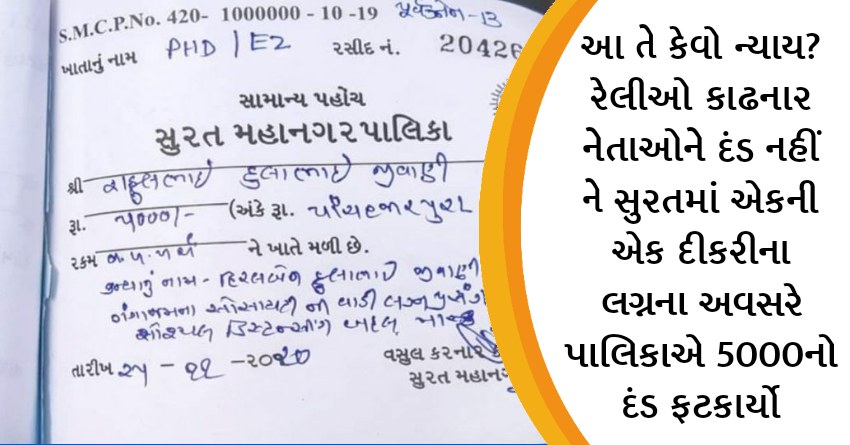 S.M.C.P.No. 420- 1000000 - 10 -19 પૂર્વઝોન-B
ખાતાનું નામ PHD / EZ રસીદ નં. 20426
સામાન્ય પહોંચ
સુરત મહાનગરપાલિકા
શ્રી રાહુલભાઇ દુલાભાઇ જીવાણી
રૂા. ૫૦૦૦/- (અંકે રૂા. પાંચહજારપુરા
રકમ બ.પ.પર્ચ ને ખાતે મળી છે.
કન્યાનું નામ - હિરલબેન દુલાભાઇ જીવાણી
ગંગાજમના સોસાયટી ની વાડી લગ્ન પ્રસંગ
સોશ્યલ ડિસ્ટન્સીંગ બદલ
તારીખ ૨૫ - ૧૧ -૨૦૨૦ વસુલ કરનાર
સુરત મહાનગ
આ તે કેવો ન્યાય?
રેલીઓ કાઢનાર
નેતાઓને દંડ નહીં
ને સુરતમાં એકની
એક દીકરીના
લગ્નના અવસરે
પાલિકાએ 5000નો
દંડ ફટકાર્યો